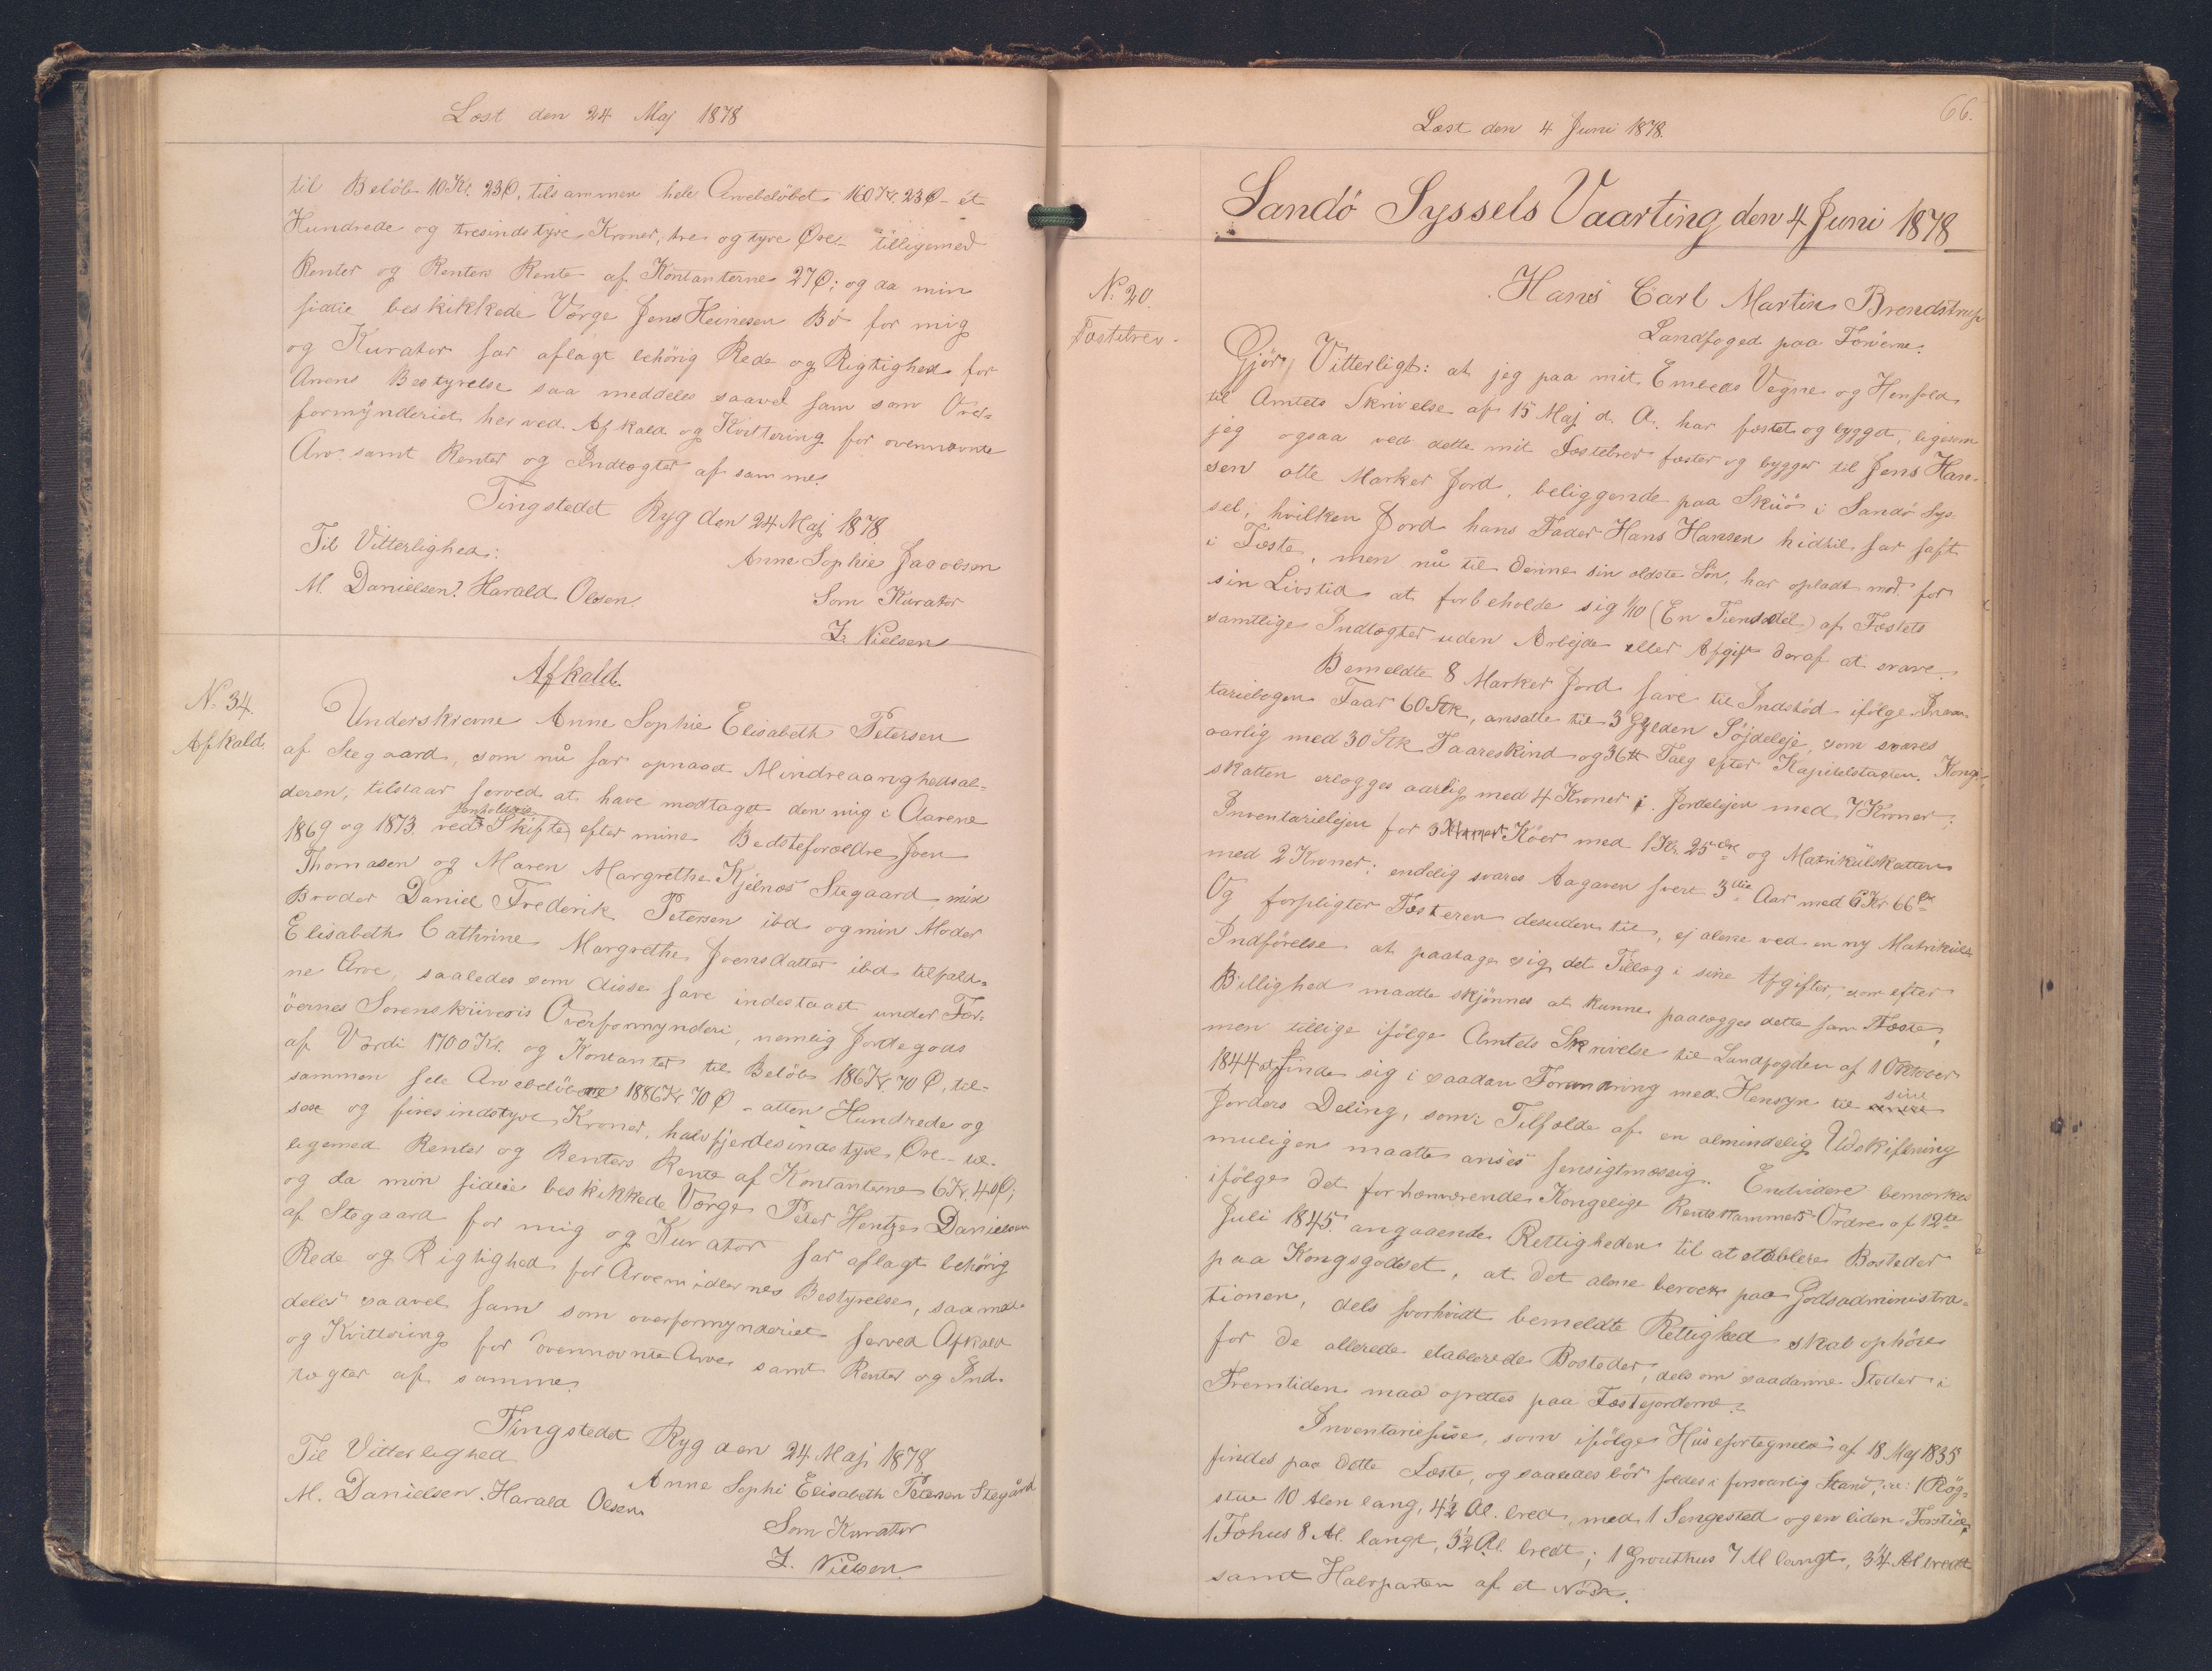 Læst den 24 Maj 1878
til Beløb 10 Kr. 23 Ø, tilsammen hele Arvebeløbet 160 Kr. 23 Ø - et
Hundrede og tresindstyve Kroner, tre og tyve Øre - tilligemed
Renter og Renters Rente af Kontanterne 27 Ø; og da min
hidtil beskikkede Værge Jens Heinesen Bö for mig
og Kurator har aflagt behörig Rede og Rigtighed for
Arvens Bestyrelse saa meddeles saavel ham som Over-
formynderiet herved Afkald og Kvittering for ovennævnte
Arv samt Renter og Indtægter af samme.
Tingstedet Ryg den 24 Maj 1878
Til Vitterlighed:
Anne Sophie Jacobsen
M. Danielsen. Harald Olsen.
Som Kurator
Z. Nielsen
Afkald
N. 34.
Afkald.
Underskrevne Anne Sophie Elisabeth Petersen
af Stegaard, som nu har opnaaet Mindreaarighedsal-
deren, tilstaar herved at have modtaget den mig i Aarene
1869 og 1873 ved henholdsvis Skifte efter mine Bedsteforældre Joen
Thomasen og Maren Margrethe Kjelnæs Stegaard, min
Broder Daniel Frederik Petersen ibd. og min Moder
Elisabeth Cathrine Margrethe Joensdatter ibd. tilfald-
ne Arv, saaledes som disse have indestaaet under Fær-
öernes Sorenskriveris Overformynderi, nemlig Jordegods
af Værdi 1700 Kr. og Kontanter til Beløb 186 Kr. 70 Ø, til-
sammen hele Arvebelöbene 1886 Kr. 70 Ø - atten Hundrede og
sex og firesindstyve Kroner, halvfjerdesindstyve Øre - til-
ligemed Renter og Renters Rente af Kontanterne 6 Kr. 40 Ø;
og da min hidtil beskikkede Værge Peter Hentze Danielsen
af Stegaard for mig og Kurator har aflagt behörig
Rede og Rigtighed for Arvemidlernes Bestyrelse, saa med-
deles saavel ham som overformynderiet herved Afkald
og Kvittering for ovennævnte Arve samt Renter og Ind-
tægter af samme.
Tingstedet Ryg den 24 Maj 1878
Til Vitterlighed
Anne Sophi Elisabeth Petersen Stegård
M. Danielsen. Harald Olsen
Som Kurator
Z. Nielsen.
66.
Læst den 4 Juni 1878.
Sandö Syssels Vaarting den 4 Juni 1878
N. 20.
Fæstebrev.
Hans Carl Martin Brendstrup
Landfoged paa Færöerne.
Gjör Vitterligt: at jeg paa mit Embeds Vegne og Henhold
til Amtets Skrivelse af 15 Maj d. A. har fæstet og bygget, ligesom
jeg ogsaa ved dette mit Fæstebrev fæster og bygger til Jens Han-
sen otte Marker Jord, beliggende paa Skuö i Sandö Sys-
sel, hvilken Jord hans Fader Hans Hansen hidtil har haft
i Fæste, men nu til denne sin ældste Sön, har opladt mod for
sin Livstid at forbeholde sig 1/10 (En Tiendedel) af Fæstets
samtlige Indtægter uden Arbejde eller Afgift deraf at svare.
Bemeldte 8 Marker Jord have til Indstöd ifölge Inven-
tariebogen Faar 60 Stk, ansatte til 3 Gylden Söjdeleje, som svares
aarlig med 30 Stk Faareskind og 36 ℔ Talg efter Kapitelstaxten. Konge-
skatten erlægges aarlig med 4 Kroner; Jordelejen med 7 Kroner;
Inventarielejen for 3 Köer med 1 Kr. 25 Øre og Matrikulskatten
med 2 Kroner; endelig svares Aagaven hvert 3die Aar med 6 Kr 66 Øre
Og forpligter Fæsteren desuden til, ej alene ved en ny Matrikuls
Indförelse at paatage sig det Tillæg i sine Afgifter, som efter
Billighed maatte skjönnes at kunne paalægges dette ham Fæste,
men tillige ifölge Amtets Skrivelse til Landfogden af 1 Oktober
1844 at finde sig i saadan Forandring med Hensyn til sine
Jorders Deling, som i Tilfælde af en almindelig Udskiftning
muligen maatte anses hensigtmæssig. Endvidere bemærkes
ifölge det forhenværende Kongelige Rentekammers Ordre af 12te
Juli 1845 angaaende Rettigheden til at etablere Bosteder
paa Kongsgodset, at det alene beroer paa Godsadministra-
tionen, dels hvorvidt bemeldte Rettighed skal ophöre
for de allerede etablerede Bosteder, dels om saadanne Steder i
Fremtiden maa oprettes paa Fæstejorderne.
Inventariehuse, som ifölge Husefortegnelse af 18 Maj 1835
findes paa dette Fæste, og saaledes bör holdes i forsvarlig Stand, ere: 1 Rög-
stue 10 Alen lang, 4½ Al. bred, med 1 Sengested og en liden Forstue,
1 Fæhus 8 Al. langt, 3½ Al. bredt; 1 Grouthus 7 Al langt, 3¼ Al bredt
samt Halvparten af et Nöst.